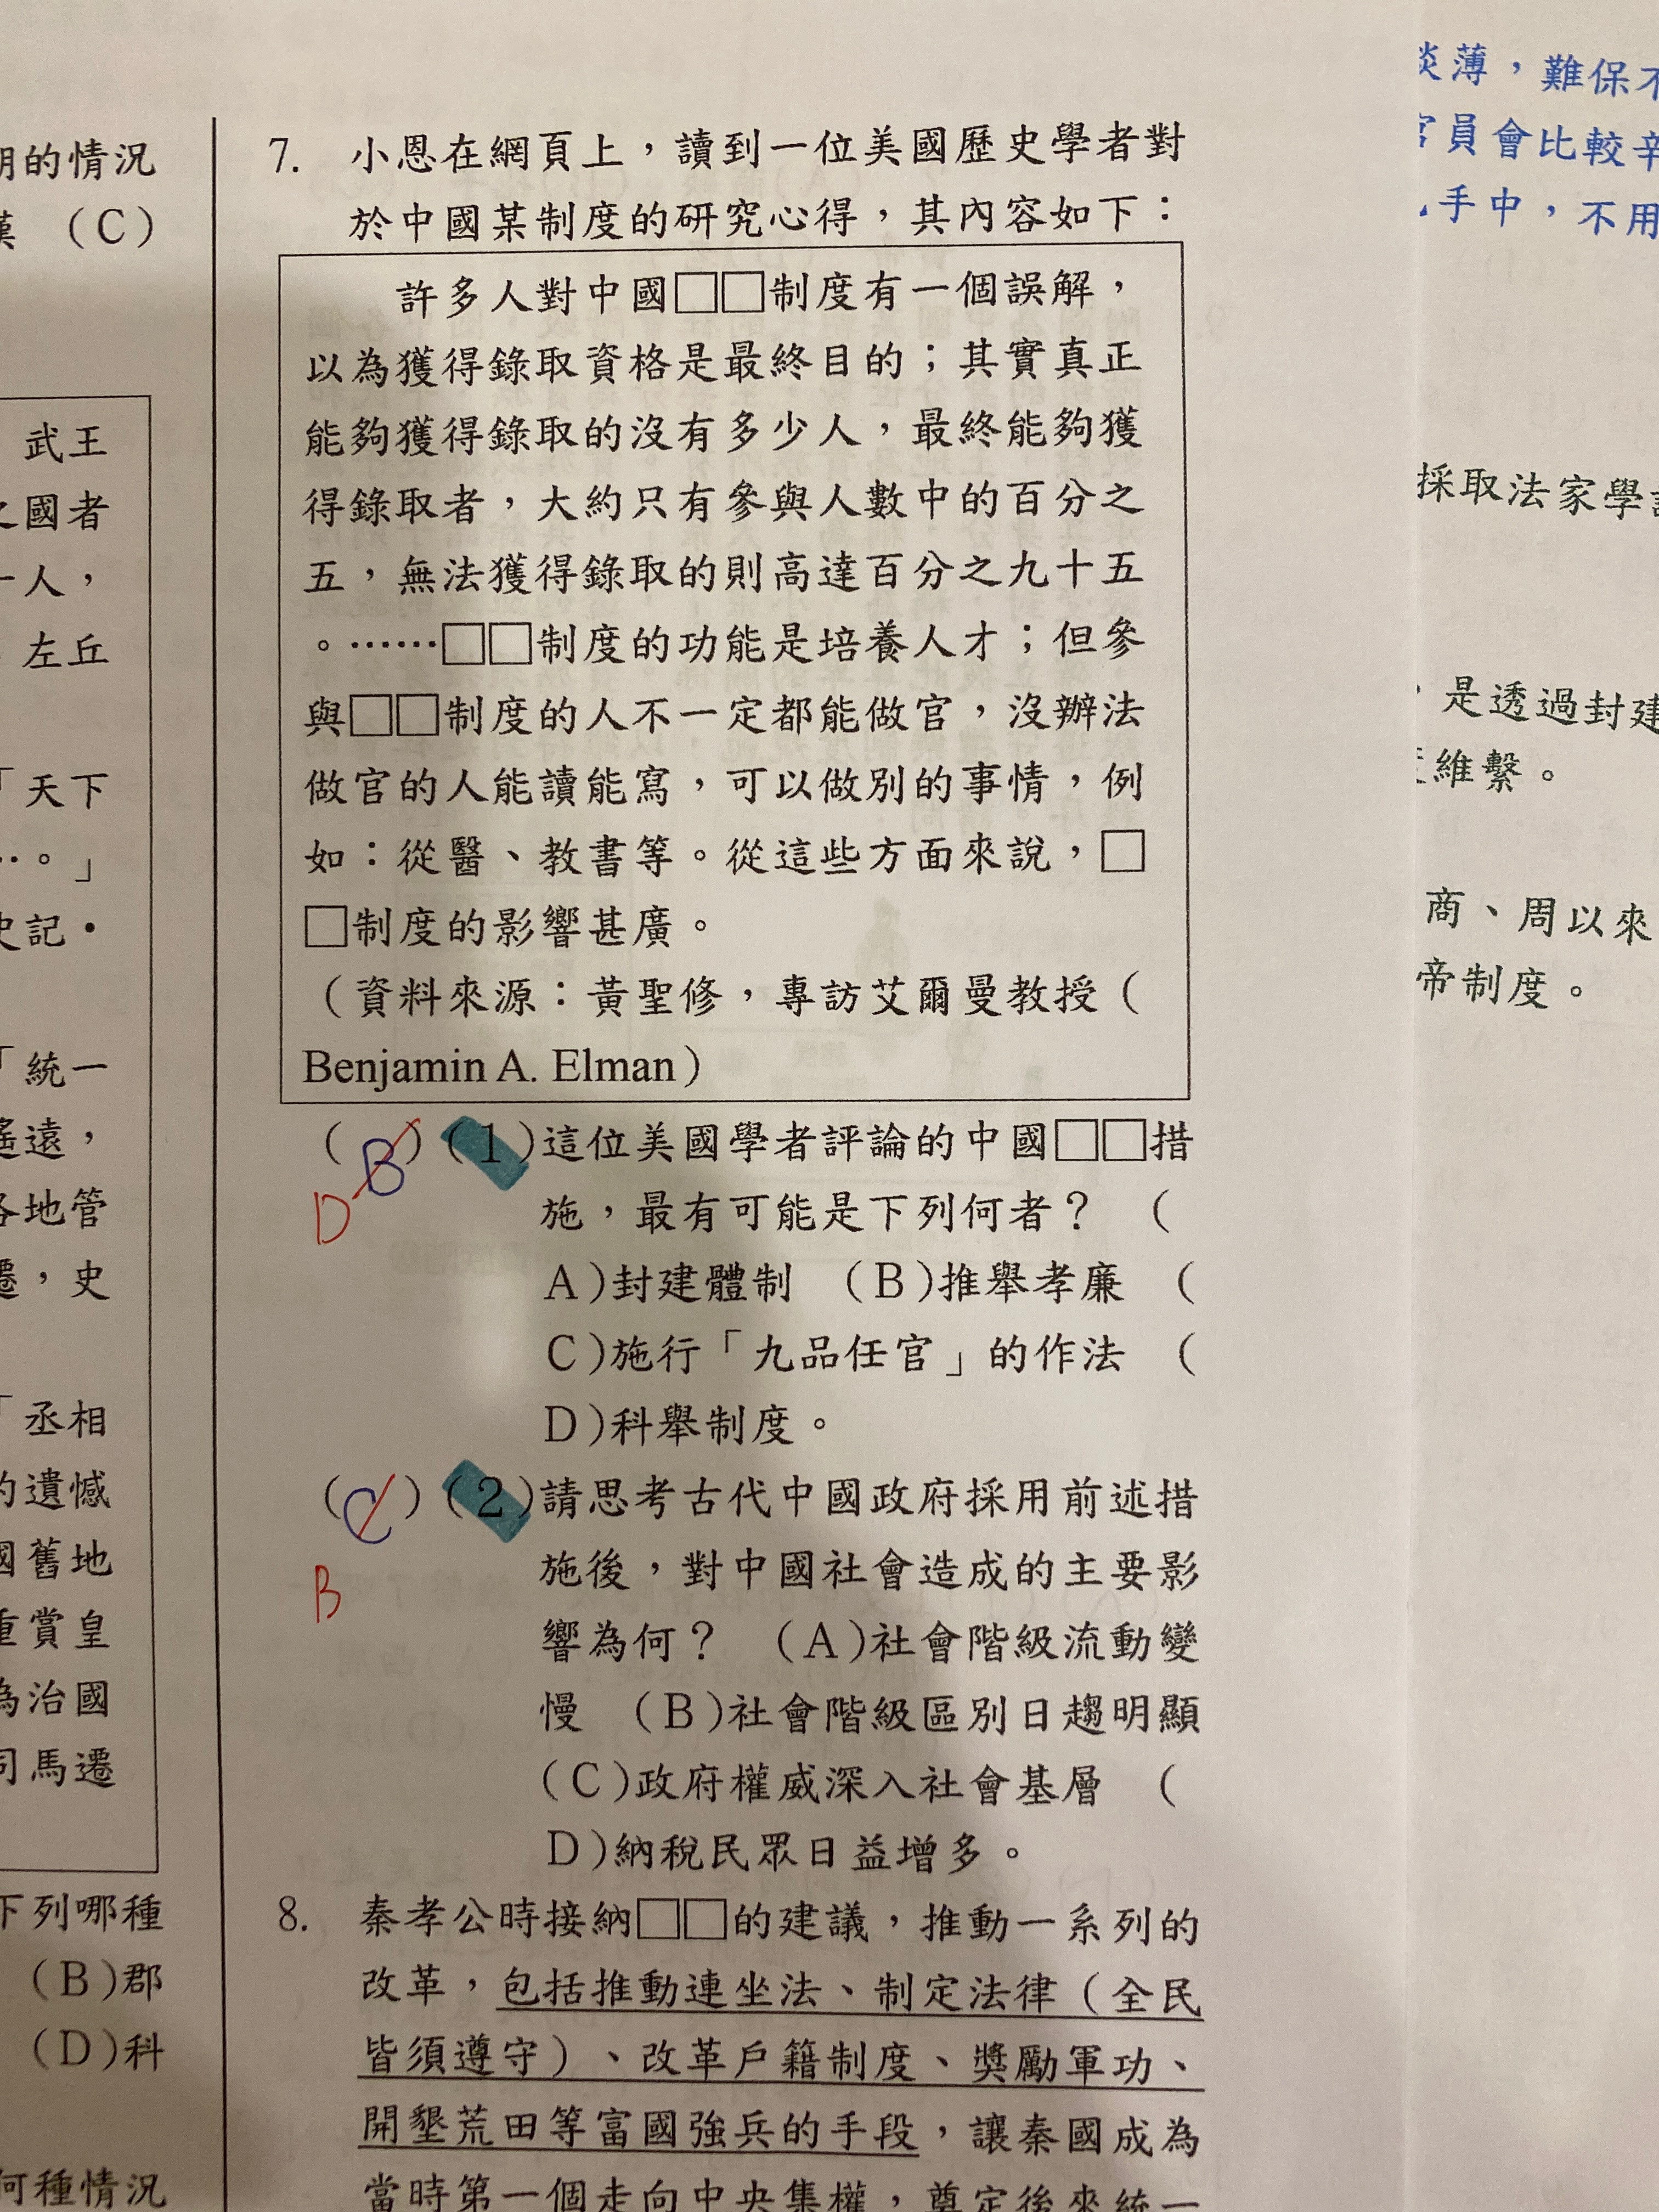 期的情況
漢 (C)
武王
之國者
一人，
左丘
「天下
…。」
史記・
「統一
遙遠，
各地管
遷，史
「丞相
的遺憾
國舊地
重賞皇
為治國
司馬遷
下列哪種
(B)郡
(D)科
何種情況
7. 小恩在網頁上，讀到一位美國歷史學者對
於中國某制度的研究心得，其內容如下：
許多人對中國□□制度有一個誤解，
以為獲得錄取資格是最終目的；其實真正
能夠獲得錄取的沒有多少人，最終能夠獲
得錄取者，大約只有參與人數中的百分之
五，無法獲得錄取的則高達百分之九十五
。……□□制度的功能是培養人才；但參
與□□制度的人不一定都能做官，沒辦法
做官的人能讀能寫，可以做別的事情，例
如：從醫、教書等。從這些方面來說，□
□制度的影響甚廣。
（資料來源：黃聖修，專訪艾爾曼教授（
Benjamin A. Elman）
( B ) (1)這位美國學者評論的中國□□措
D
施，最有可能是下列何者？ (
A)封建體制 (B)推舉孝廉 (
C)施行「九品任官」的作法 (
D)科舉制度。
( C ) (2)請思考古代中國政府採用前述措
施後，對中國社會造成的主要影
B
響為何？ (A)社會階級流動變
慢 (B)社會階級區別日趨明顯
(C)政府權威深入社會基層 (
D)納稅民眾日益增多。
8. 秦孝公時接納□□的建議，推動一系列的
改革，包括推動連坐法、制定法律（全民
皆須遵守）、改革戶籍制度、獎勵軍功、
開墾荒田等富國強兵的手段，讓秦國成為
當時第一個走向中央集權，奠定後來統一
淡薄，難保不
官員會比較辛
手中，不用
採取法家學
，是透過封建
維繫。
商、周以來
帝制度。